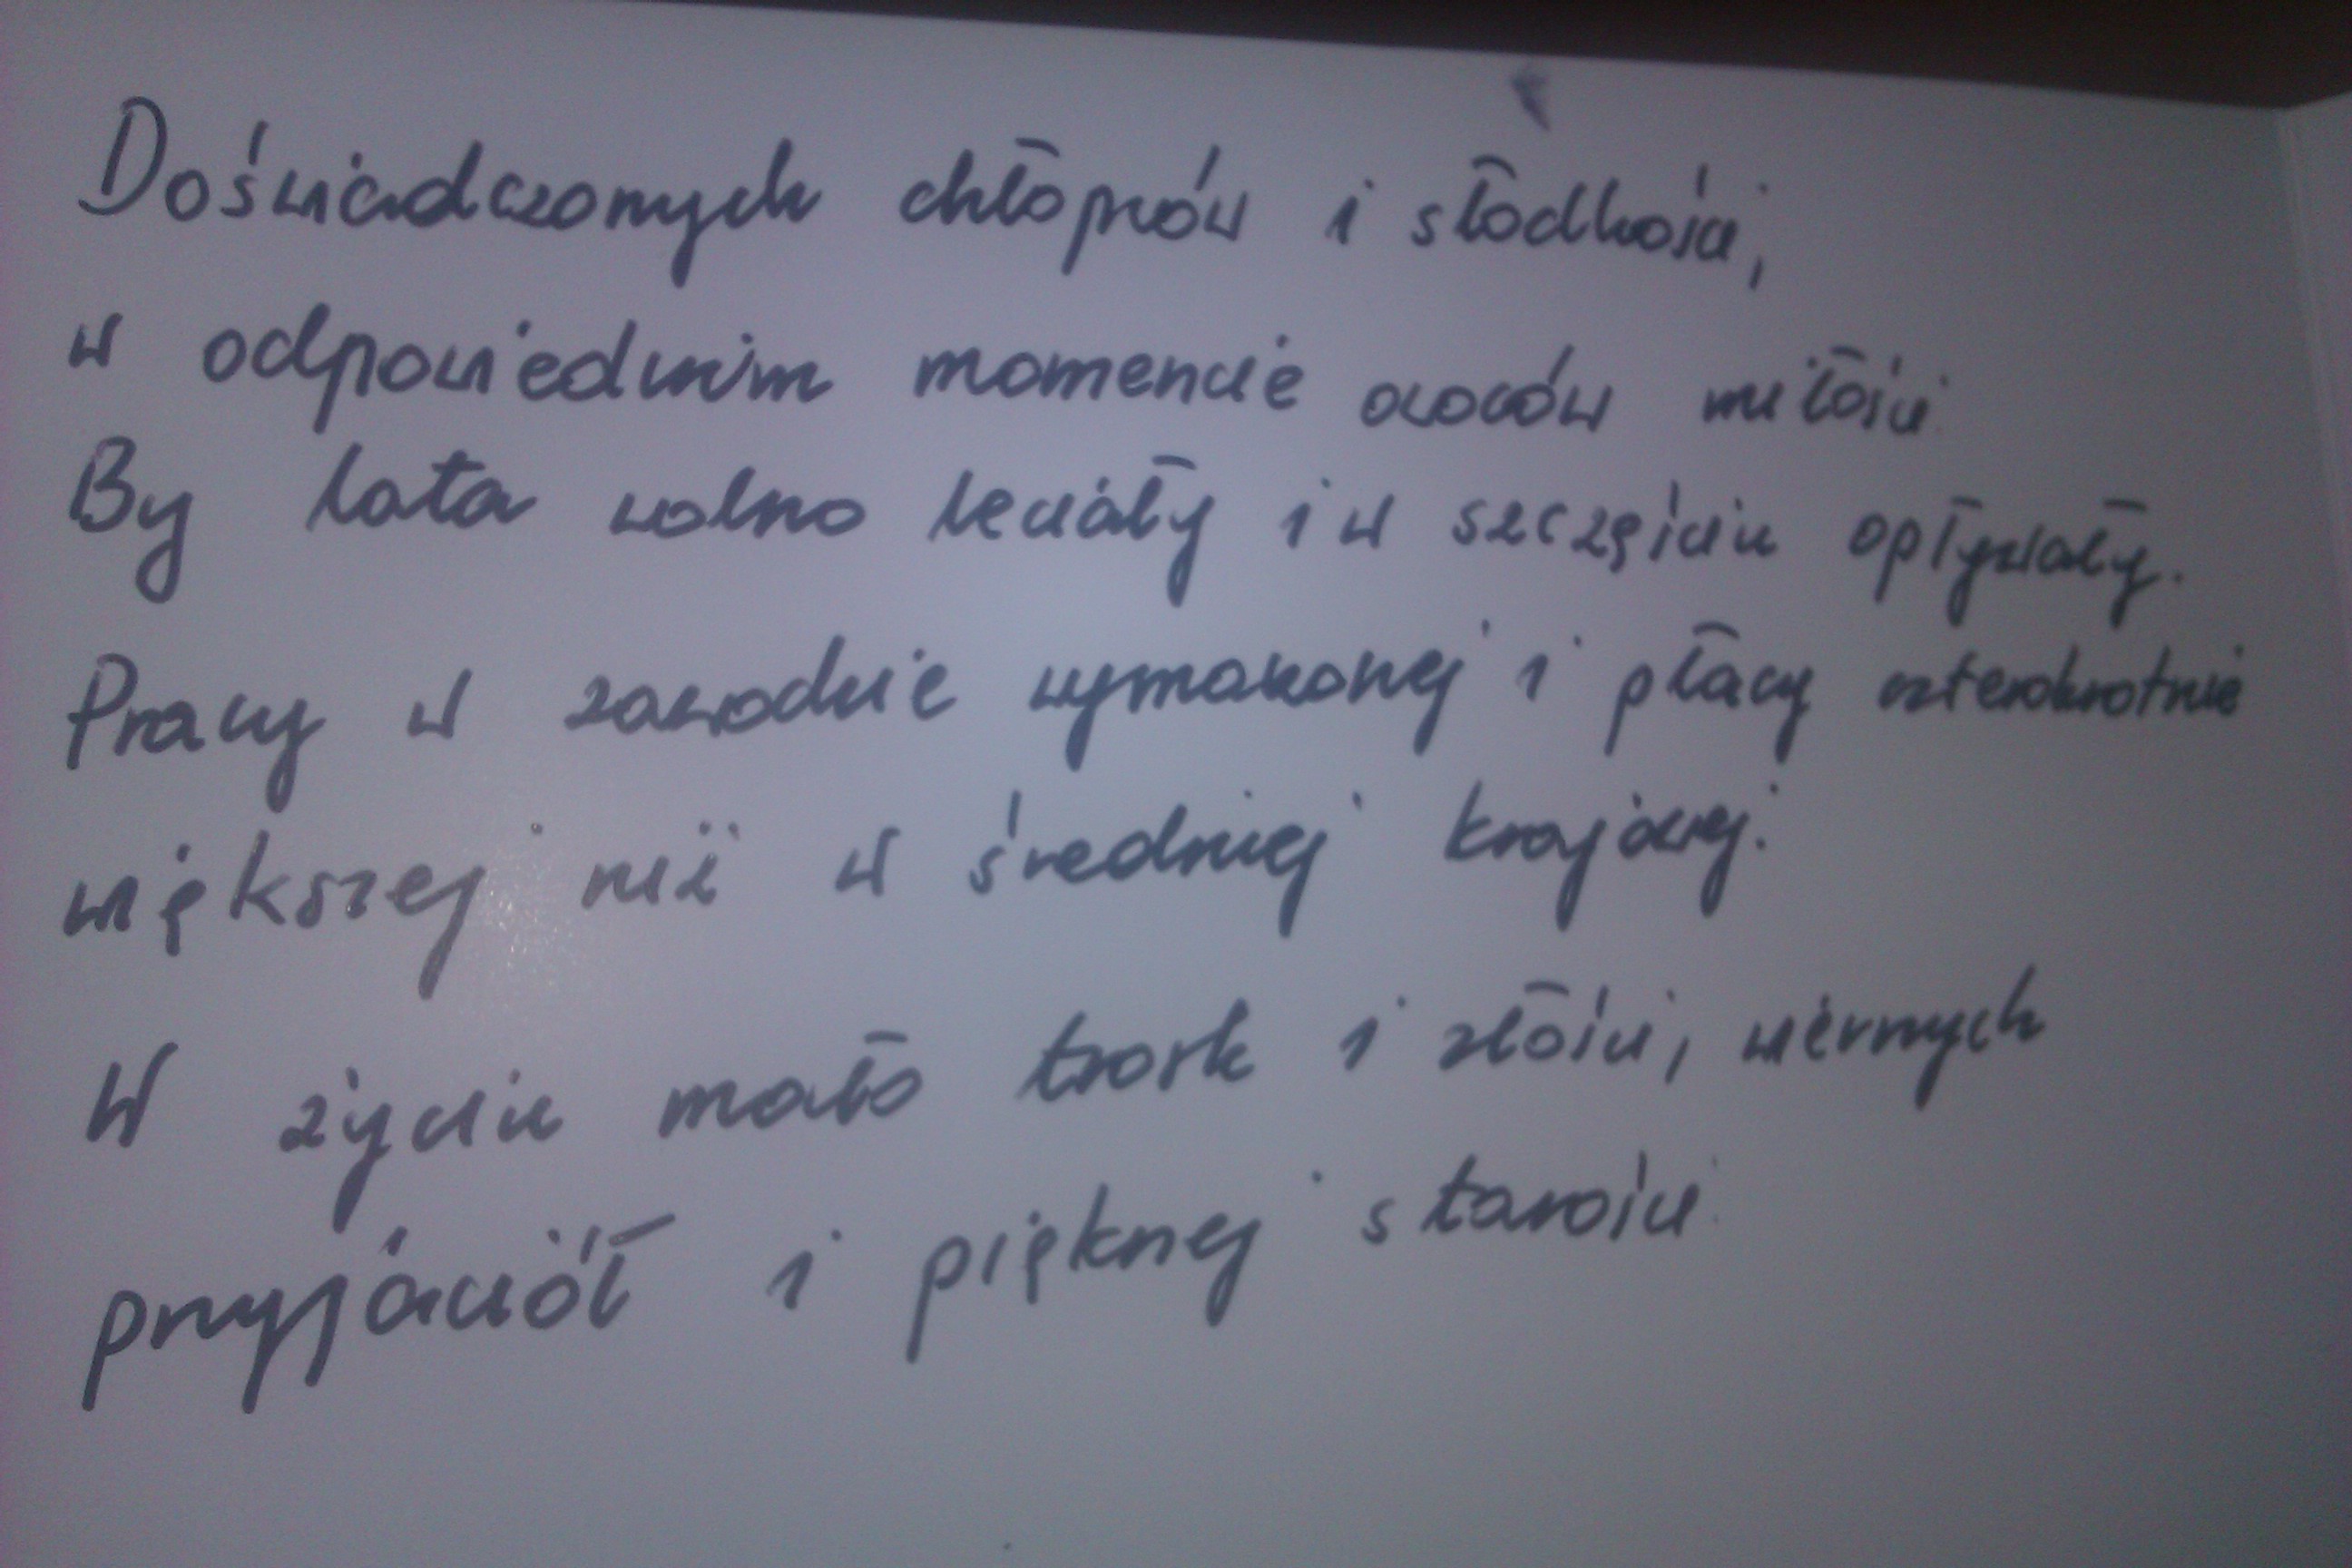 Doświadczonych chłopców i słodkości,
w odpowiednim momencie owoców miłości
By lata wolno leciały i w szczęściu opływały.
Pracy w zawodzie wymarzonej i płacy czterokrotnie
większej niż w średniej krajowej.
W życiu mało trosk i złości, wiernych
przyjaciół i pięknej starości